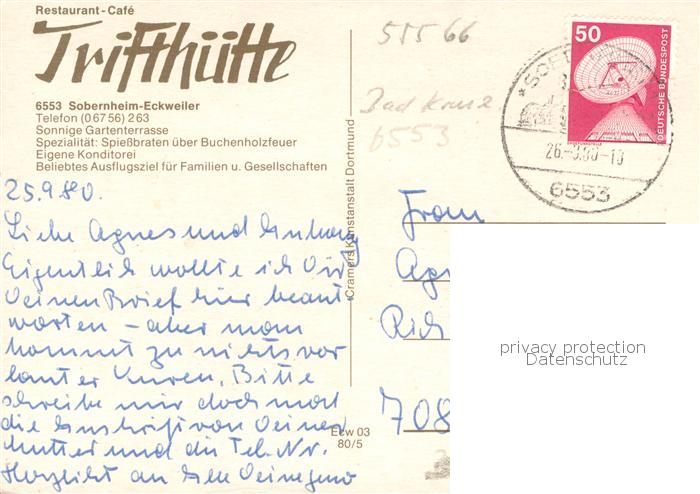 Restaurant-Café
Trifthütte
6553 Sobernheim-Eckweiler
Telefon (06756) 263
Sonnige Gartenterrasse
Spezialität: Spießbraten über Buchenholzfeuer
Eigene Konditorei
Beliebtes Ausflugsziel für Familien u. Gesellschaften
25.9.80.
Liebe Agnes und
Eigentlich wollte ich Dir
Deinen Brief hier beant
worten – aber man
kommt zu nichts vor
lauter Kuren. Bitte
schreibe mir doch mal
die Anschrift von Deiner
Mutter und die Tel. Nr.
Herzlichst an alle Deine
Ecw 03
80/5
Cramers Kunstanstalt Dortmund
515 66
Bad
6553
50
DEUTSCHE BUNDESPOST
26.-9.80-10
6553
Frau
Ag
Rich
708
privacy protection
Datenschutz